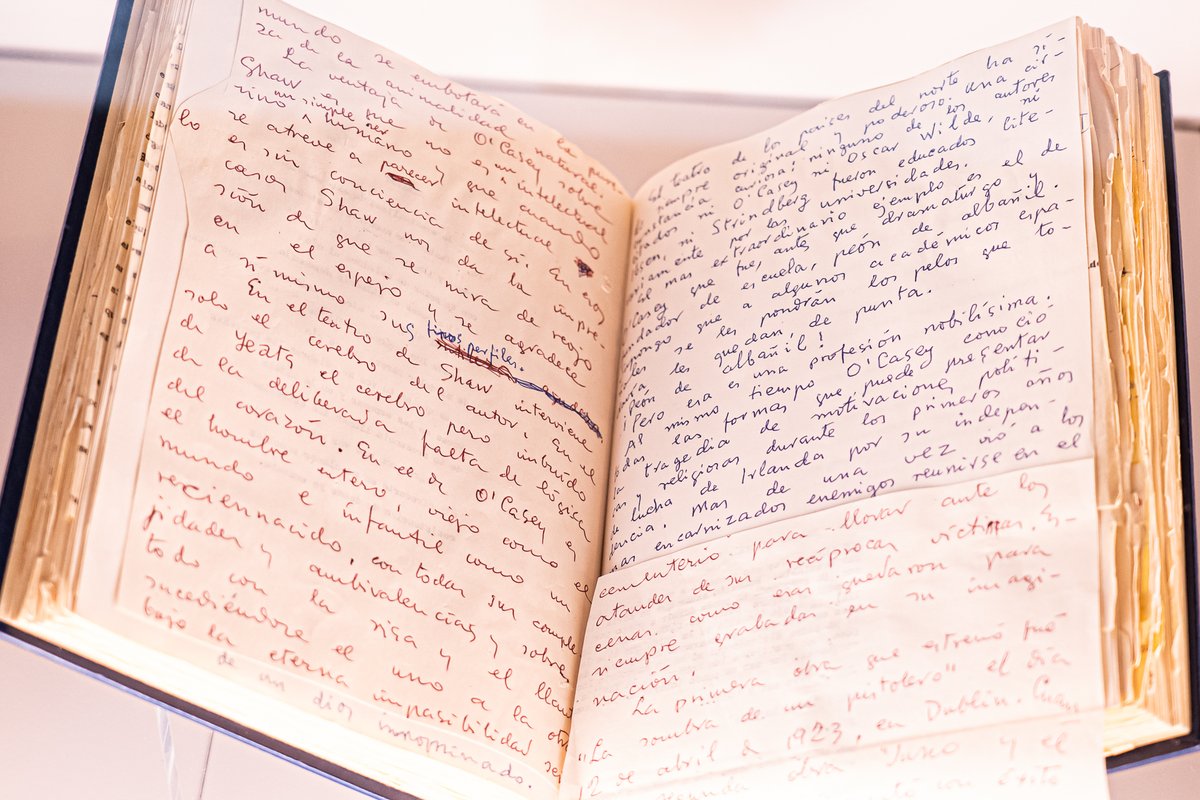 mundo se embotará en la pura
za de la animalidad natural.
La ventaja de O'Casey sobre
Shaw es que no es un intelectual
un simple ser
rino humano y que cuando
se atreve a parecer intelectual lo
es sin conciencia de sí. En esos
casos Shaw nos da la impre-
sión de que se mira de reojo
en el espejo y se agradece
a sí mismo sus finos perfiles.
En el teatro de Shaw interviene
solo el cerebro del autor. En el
de Yeats el cerebro pero imbuido
de la deliberada falta de lógica
del corazón. En el de O'Casey es
el hombre entero, viejo como el
mundo e infantil como un
recien nacido, con todas sus comple-
jidades y ambivalencias y sobre
todo con la risa y el llanto
sucediéndose el uno a la otra
bajo la eterna impasibilidad
de un dios
El teatro de los países del norte ha si-
do siempre original y poderoso. Una cir-
cunstancia curiosa: ninguno de los autores
citados ni O'Casey ni Oscar Wilde, ni
Ibsen, ni Strindberg fueron educados lite-
rariamente por las universidades.
El mas extraordinario ejemplo es el de
O'Casey que fue, antes que dramaturgo y
fundador de escuela, peón de albañil.
Supongo que a algunos académicos espa-
ñoles se les pondrán los pelos que to-
davía les quedan, de punta.
¡Peón de albañil!
Pero era es una profesión nobilísima.
Al mismo tiempo O'Casey conoció
todas las formas que puede presentar
la tragedia de motivaciones políti-
cas y religiosas durante los primeros años
de lucha de Irlanda por su indepen-
dencia. Mas de una vez vió a los
mas encarnizados enemigos reunirse en el
cementerio para llorar ante los
ataudes de sus recíprocas víctimas. Es-
cenas como esas quedaron para
siempre grabadas en su imagi-
nación.
La primera obra que estrenó fué
"La sombra de un pistolero" el día
12 de abril de 1923, en Dublin. Cuan
segunda obra Juno y el
con éxito